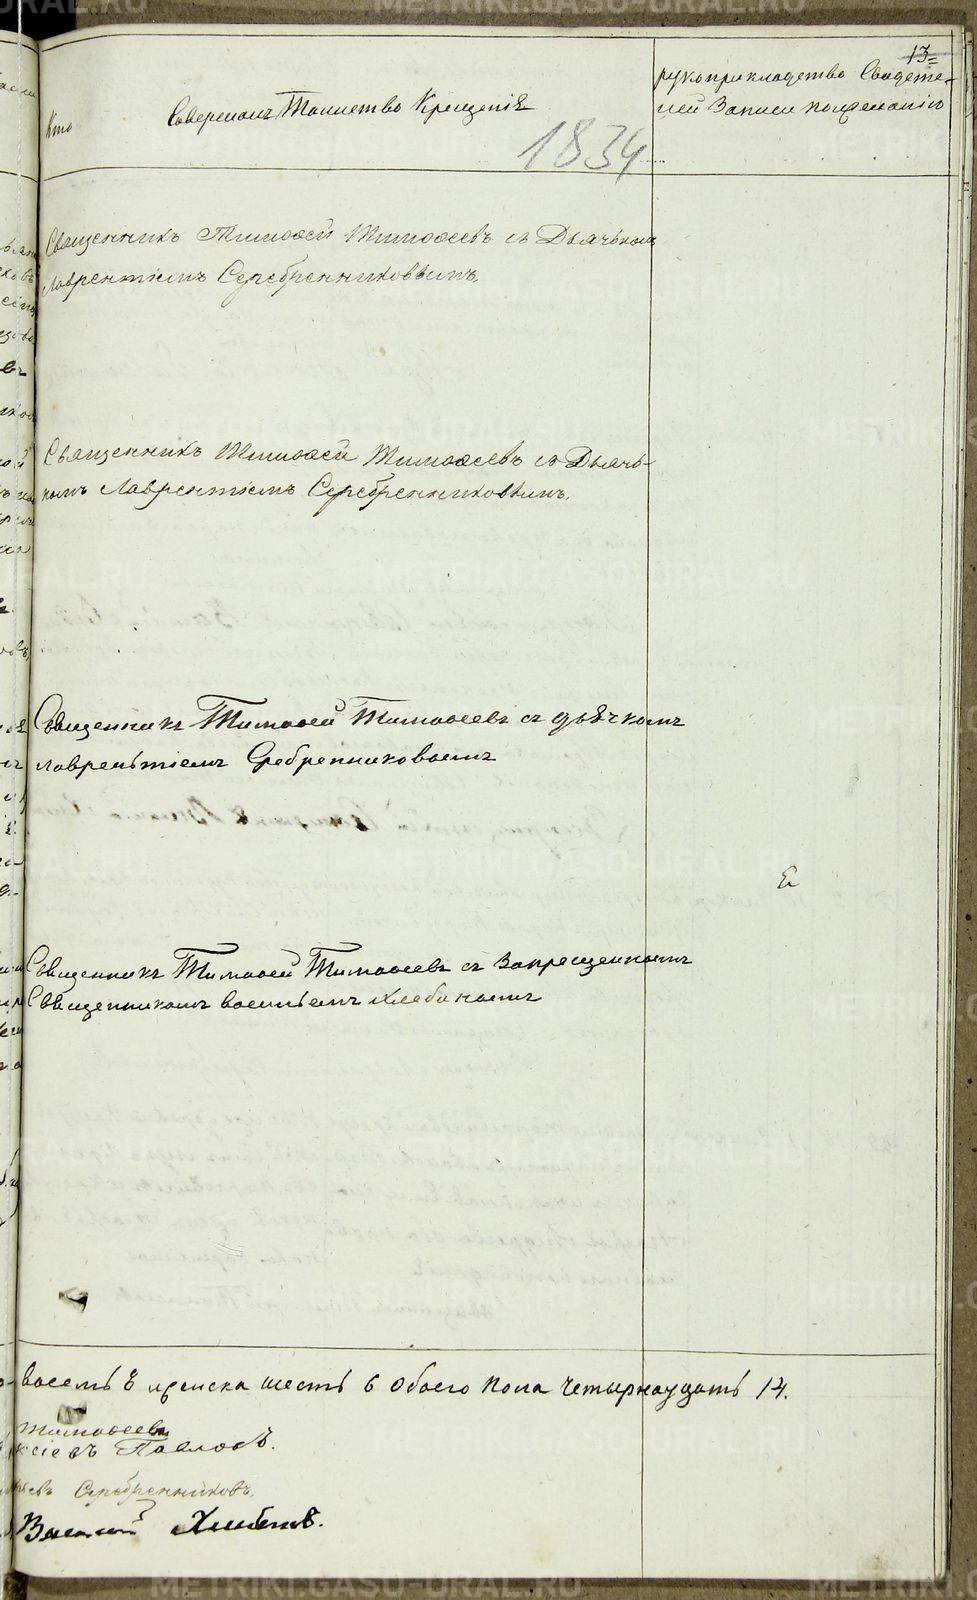 13
Кто Совершалъ Таинство Крещенія
рукоприкладство Свидете-
лей Записи пожеланію
1834
Священникъ Тимоѳей Тимоѳеевъ съ Дьячькомъ
Лаврентіемъ Серебренниковымъ.
Священникъ Тимоѳей Тимоѳеевъ съ Дьячь-
комъ Лаврентіемъ Серебренниковымъ.
Священникъ Тимоѳей Тимоѳеевъ съ дьячкомъ
лаврентіемъ Серебренниковымъ
Священникъ Тимоѳей Тимоѳеевъ съ Запрещеннымъ
Священникомъ васильемъ
восемь 8 женска шесть 6 обоего пола четырнадцать 14.
Тимоѳеевъ
Павловъ.
Серебренниковъ.
Василій
METRIKI.GASO-URAL.RU